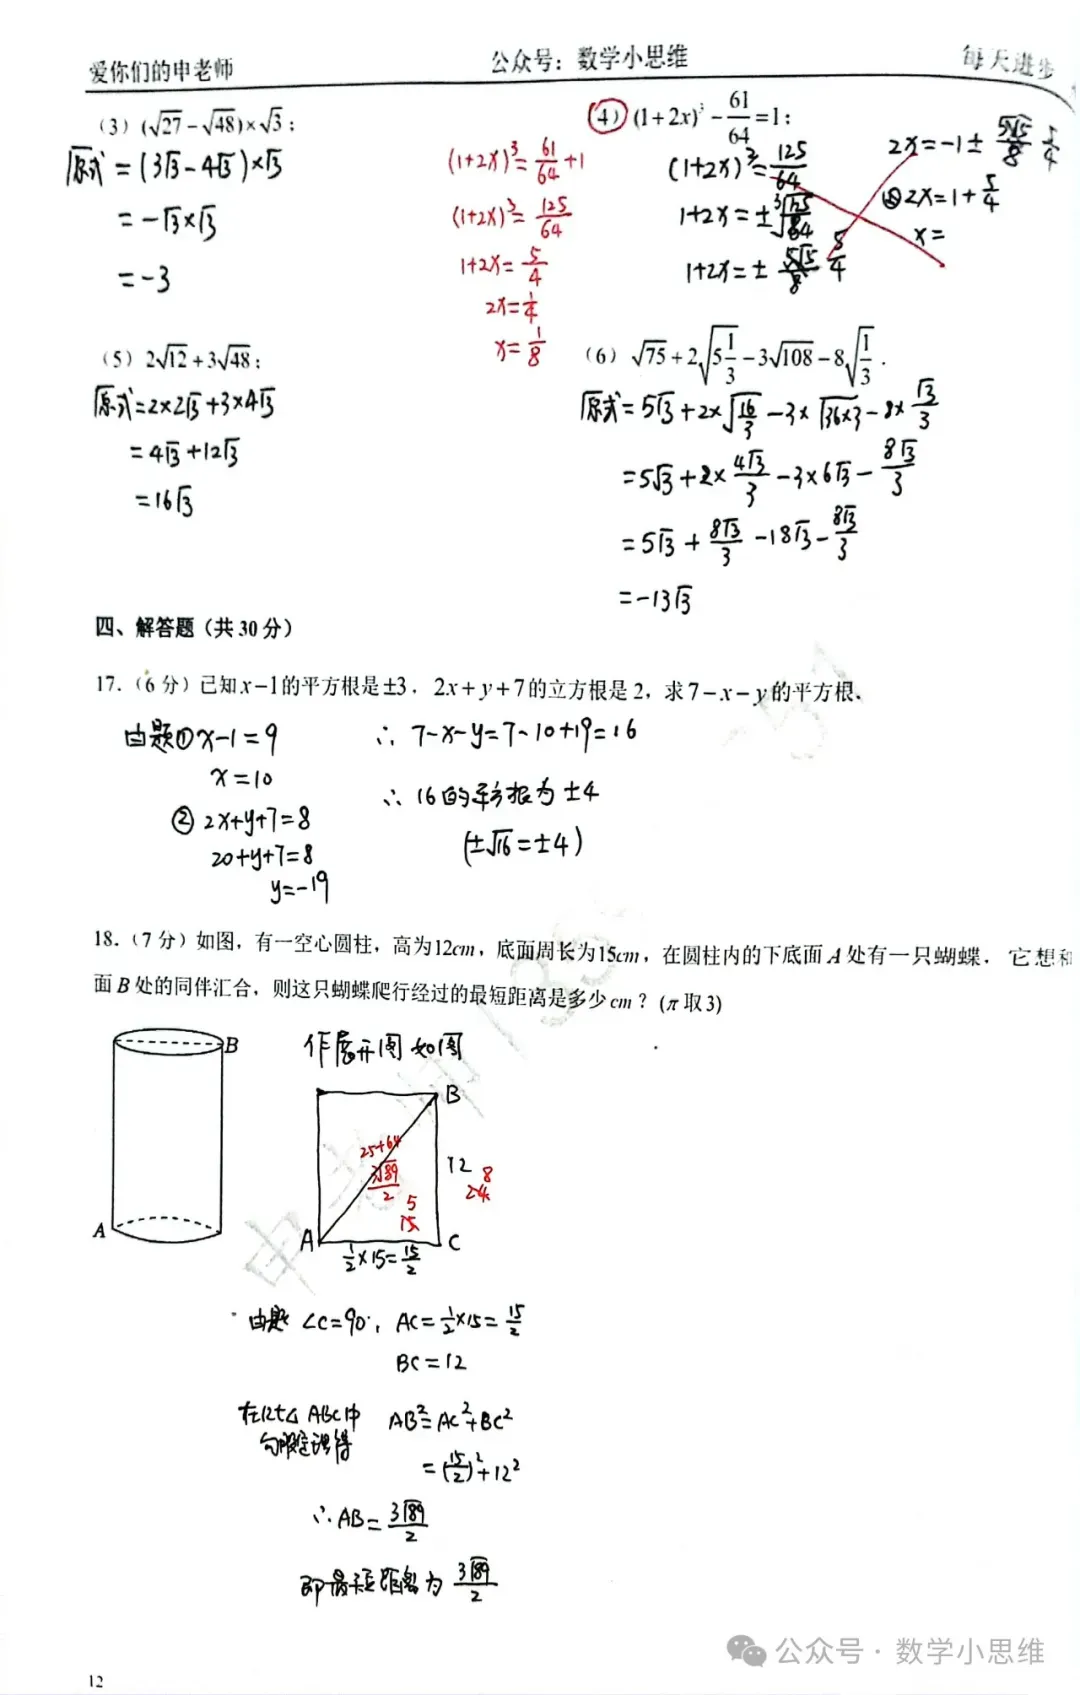 爱你们的申老师 公众号：数学小思维 每天进步
（3）(√27−√48)×√3；
原式=(3√3-4√3)×√3
=-√3×√3
=-3
(4) (1+2x)³−61/64=1；
(1+2x)³=61/64+1
(1+2x)³=125/64
1+2x=5/4
2x=1/4
x=1/8
(1+2x)³=125/64
1+2x=±³√125/64
1+2x=± 5√5/8 5/4
2x=-1± 5√5/8 5/4
2x=1+5/4
x=
（5）2√12+3√48；
原式=2×2√3+3×4√3
=4√3+12√3
=16√3
（6）√75+2√5 1/3−3√108−8√1/3.
原式=5√3+2×√16/3-3×√36×3-8×√3/3
=5√3+2×4√3/3-3×6√3-8√3/3
=5√3+8√3/3-18√3-8√3/3
=-13√3
四、解答题（共30分）
17.（6分）已知x−1的平方根是±3，2x+y+7的立方根是2，求7−x−y的平方根.
由题①x-1=9
x=10
②2x+y+7=8
20+y+7=8
y=-19
∴7-x-y=7-10+19=16
∴16的平方根为±4
(±√16=±4)
18.（7分）如图，有一空心圆柱，高为12cm，底面周长为15cm，在圆柱内的下底面A处有一只蝴蝶，它想和
面B处的同伴汇合，则这只蝴蝶爬行经过的最短距离是多少cm？(π取3)
B
A
作展开图如图
B
25+64
3√89/2
12 8
24
5
15
A C
1/2×15=15/2
由题∠C=90°，AC=1/2×15=15/2
BC=12
在Rt△ABC中 AB²=AC²+BC²
勾股定理得
=(15/2)²+12²
∴AB=3√89/2
即最短距离为3√89/2
公众号·数学小思维
12